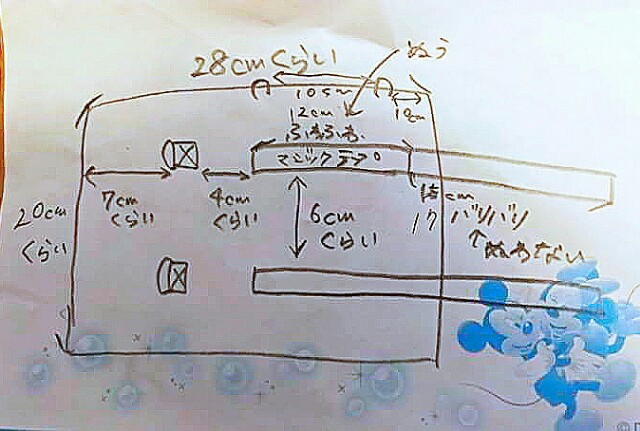 28cmくらい
ぬう
10cm
12cm
ふわふわ
マジックテープ
7cm
くらい
4cm
くらい
6cm
くらい
cm
バリバリ
ぬわない
20cm
くらい